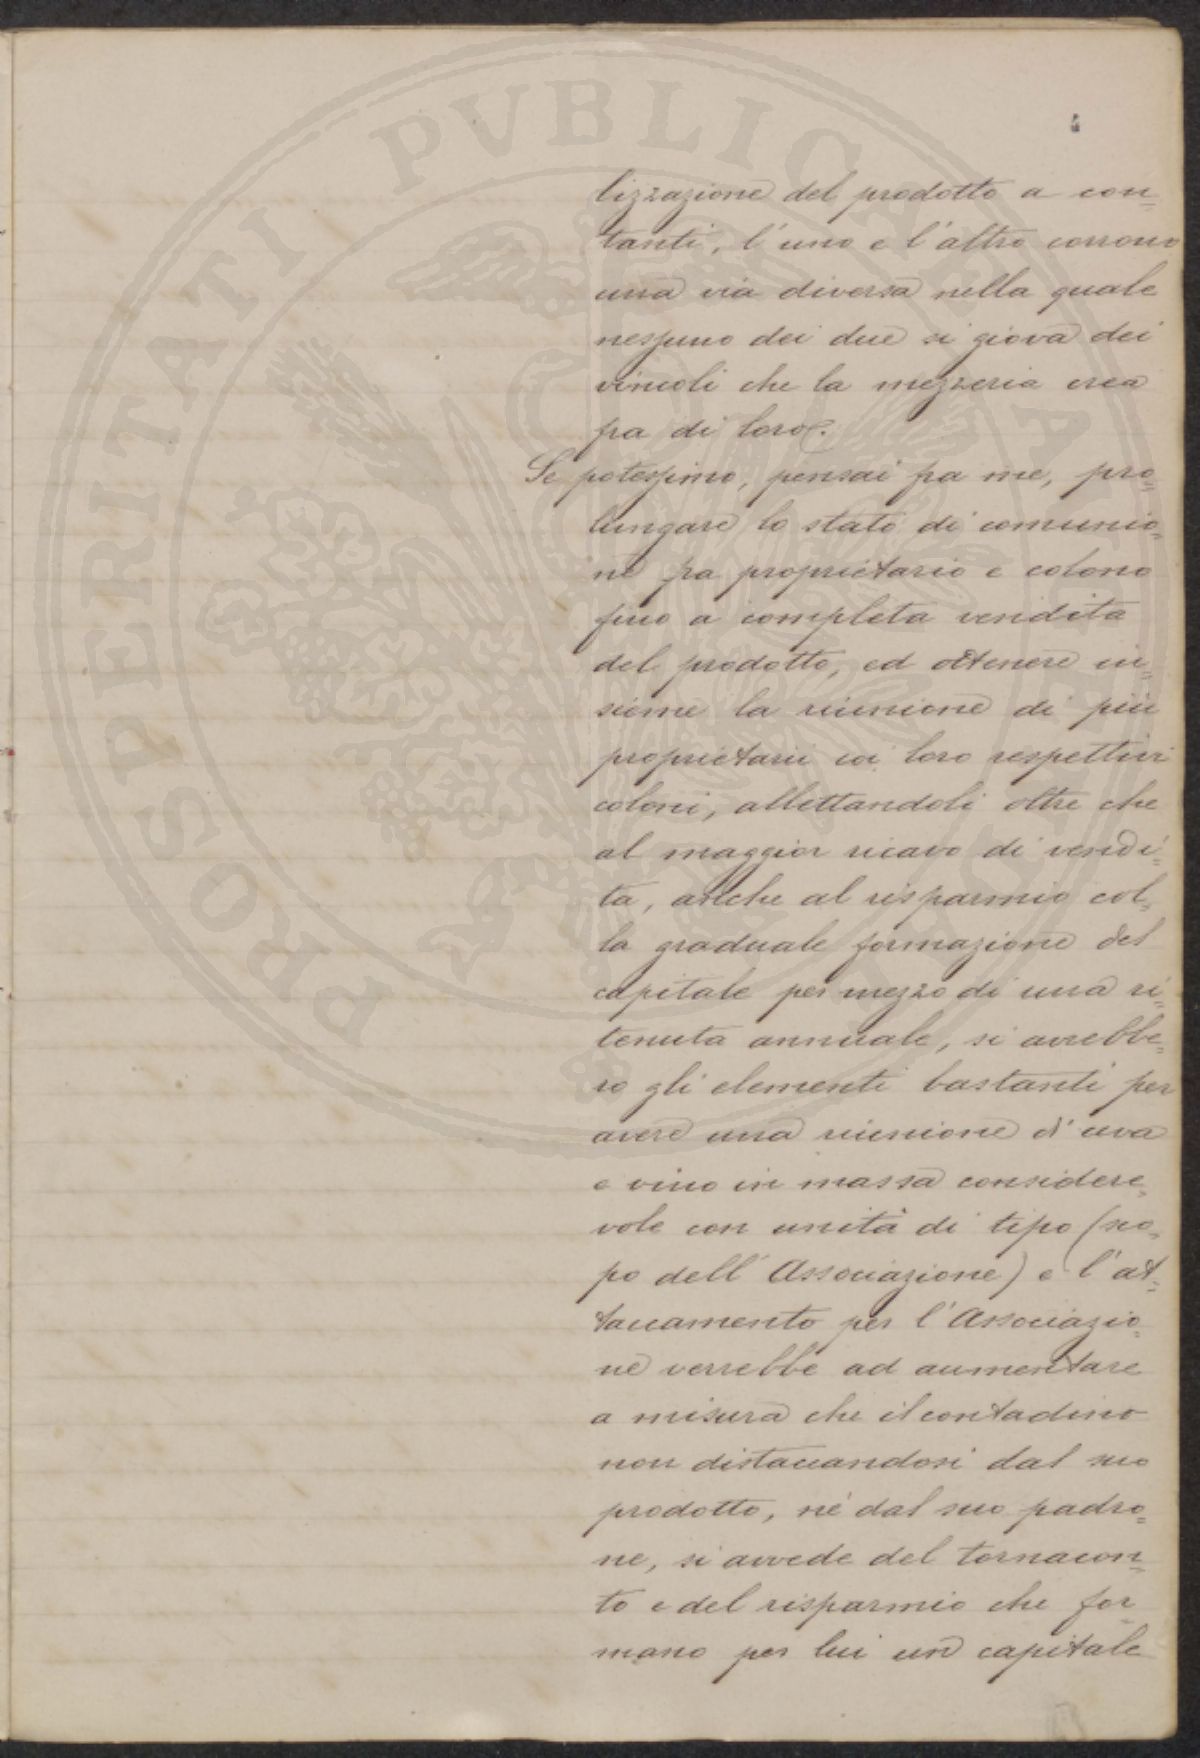 PROSPERITATI PVBLICAE
lizzazione del prodotto a con=
tanti, l'uno e l'altro corrono
una via diversa nella quale
nessuno dei due si giova dei
vincoli che la mezzeria crea
fra di loro.
Se potessimo, pensai fra me, pro=
lungare lo stato di comunio=
ne fra proprietario e colono
fino a completa vendita
del prodotto, ed ottenere in=
sieme la riunione di più
proprietarii coi loro respettivi
coloni, allettandoli oltre che
al maggior ricavo di vendi=
ta, anche al risparmio col=
la graduale formazione del
capitale per mezzo di una ri=
tenuta annuale, si avrebbe=
ro gli elementi bastanti per
avere una riunione d'uva
e vino in massa considere=
vole con unità di tipo (sco=
po dell'Associazione) e l'at=
taccamento per l'Associazio=
ne verrebbe ad aumentare
a misura che il contadino
non distaccandosi dal suo
prodotto, nè dal suo padro=
ne, si avvede del tornacon=
to e del risparmio che for=
mano per lui un capitale